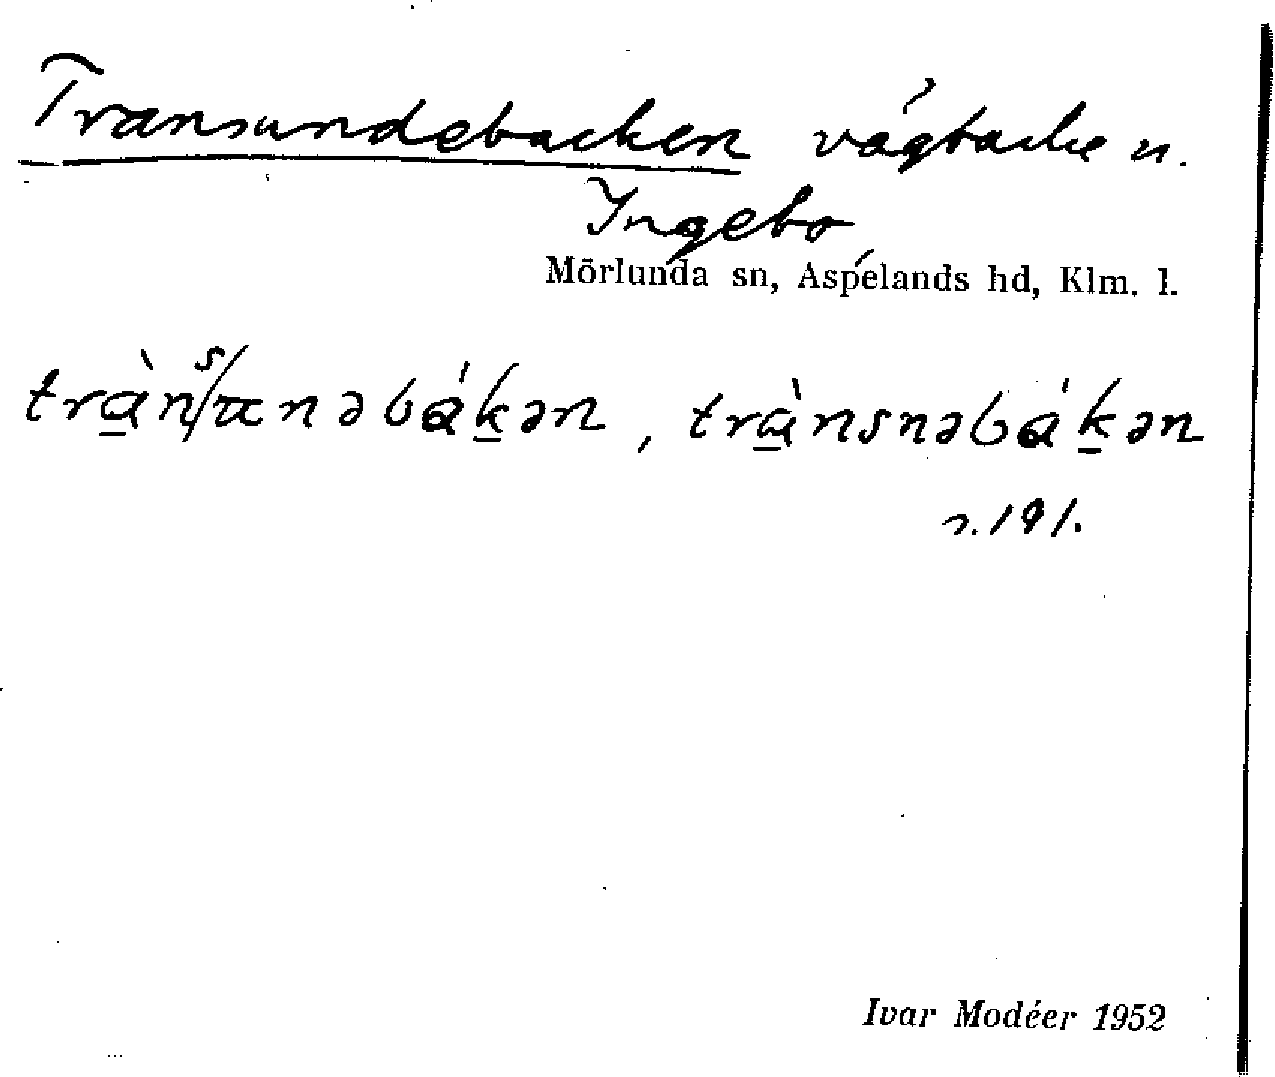 Transundebacken vägbacke n.
Ingebo
Mörlunda sn, Aspelands hd, Klm. l.
trà̱nsunəbákən, trà̱nsnəbáḵən
s. 191.
Ivar Modéer 1952